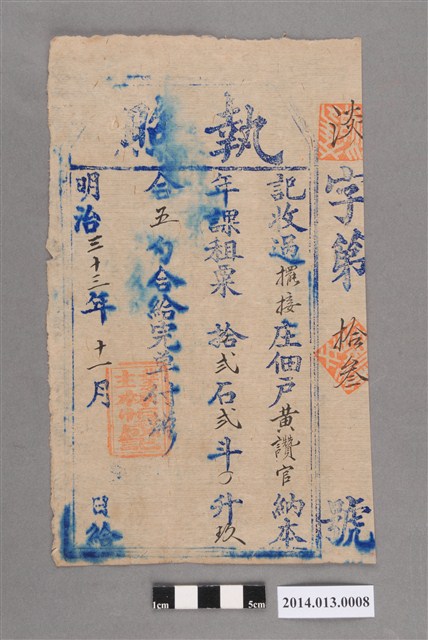 淡字第拾叁號
執照
記收過擺接庄佃戶黃讚官納本
年課租粟拾弍石弍斗〇升玖
合五勺合給完單付炤
明治三十三年十一月 日給
1cm 5cm
2014.013.0008